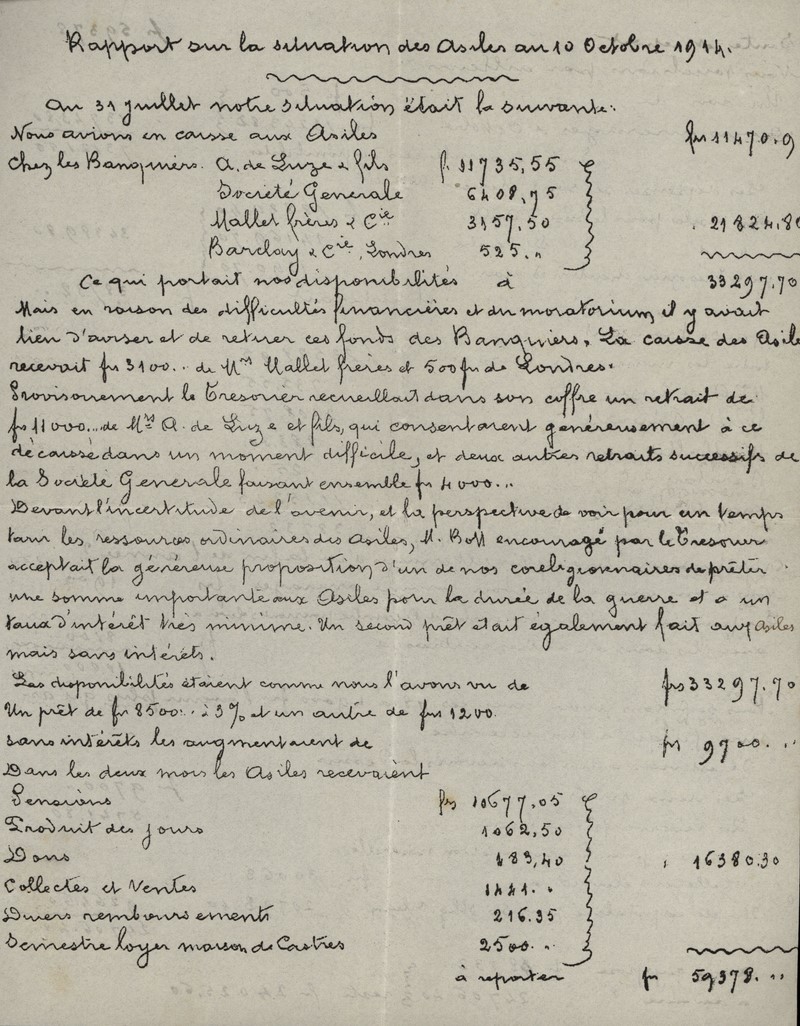 Rapport sur la situation des Asiles au 10 Octobre 1914.
Au 31 juillet notre situation était la suivante:
Nous avions en caisse aux Asiles frs 11470.9
Chez les Banquiers. A. de Luze & fils f. 11735,55
Société Generale 6408,75
Mallet frères & Cie 3157,50 . 21824.80
Barclay & Cie, Londres 525."
Ce qui portait nos disponibilités à 33297.70
Mais en raison des difficultés financières et du moratorium, il y avait
lieu d'aviser et de retirer ces fonds des Banquiers. La caisse des Asile
recevait frs 3100... de Mrs Mallet frères et 500 frs de Londres.
Provisoirement le Tresorier recueillait dans son coffre un retrait de
frs 11000... de Mrs A. de Luze et fils, qui consentaient généreusement à ce
décaissé dans un moment difficile, et deux autres retraits successifs de
la Société Generale faisant ensemble frs 4000...
Devant l'incertitude de l'avenir, et la perspective de voir pour un temps
tarir les ressources ordinaires des Asiles, M. encouragé par le Tresorier
acceptait la généreuse proposition d'un de nos coreligionnaires de prêter
une somme importante aux Asiles pour la durée de la guerre et a un
taux d'intérêt très minime. Un second prêt était également fait aux Asiles
mais sans intérêts.
Les disponibilités étaient comme nous l'avons vu de frs 33297.70
Un prêt de frs 8500... à 3% et un autre de frs 1200.
sans intérêts les augmentaient de frs 9700. "
Dans les deux mois les Asiles recevaient
Pensions frs 10677,05
Produit des jours 1062,50
Dons 483,40 , 16380.30
Collectes et Ventes 1441. "
Divers remboursements 216.35
Semestre loyer maison de Castres 2500. "
à reporter frs 59378. "